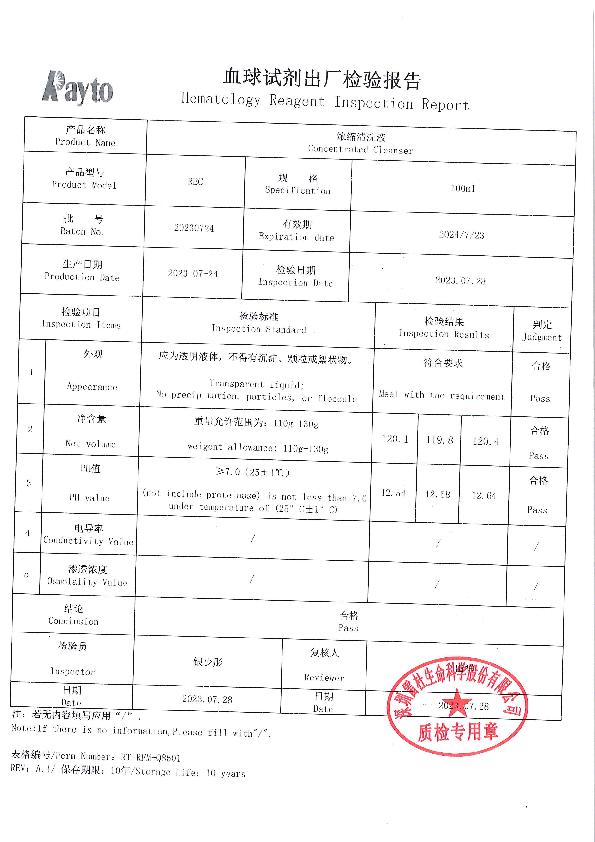 Rayto
血球试剂出厂检验报告
Hematology Reagent Inspection Report
产品名称
Product Name
浓缩清洁液
Concentrated Cleanser
产品型号
Product Model
规 格
Specification
100ml
批 号
Batch No.
20230724
有效期
Expiration date
2024/7/23
生产日期
Production Date
2023-07-24
检验日期
Inspection Date
2023.07.28
检验项目
Inspection Items
检验标准
Inspection Standard
检验结果
Inspection Results
判定
Judgment
1
外观
Appearance
应为透明液体，不得有沉淀、颗粒或絮状物。
Transparent liquid;
No precipitation, particles, or floccule
符合要求
Meet with the requirement
合格
Pass
2
净含量
Net volume
重量允许范围为：110g-130g
weigent allowance: 110g-130g
120.1
119.8
120.4
合格
Pass
3
PH值
PH value
≥7.0 (25±1℃)
(not include protease) is not less than 7.0
under temperature of (25°C±1°C)
12.54
12.58
12.64
合格
Pass
4
电导率
Conductivity Value
/
/
/
渗透浓度
Osmolality Value
/
/
/
结论
Conclusion
合格
Pass
检验员
Inspector
复核人
Reviewer
日期
Date
2023.07.28
日期
Date
2023.07.28
深圳雷杜生命科学股份有限公司
质检专用章
注：若无内容填写应用"/"．
Note:If there is no information,Please fill with"/".
表格编号/Form Number: RT-REM-QS501
REV: A.1/ 保存期限：10年/Storage Life: 10 years